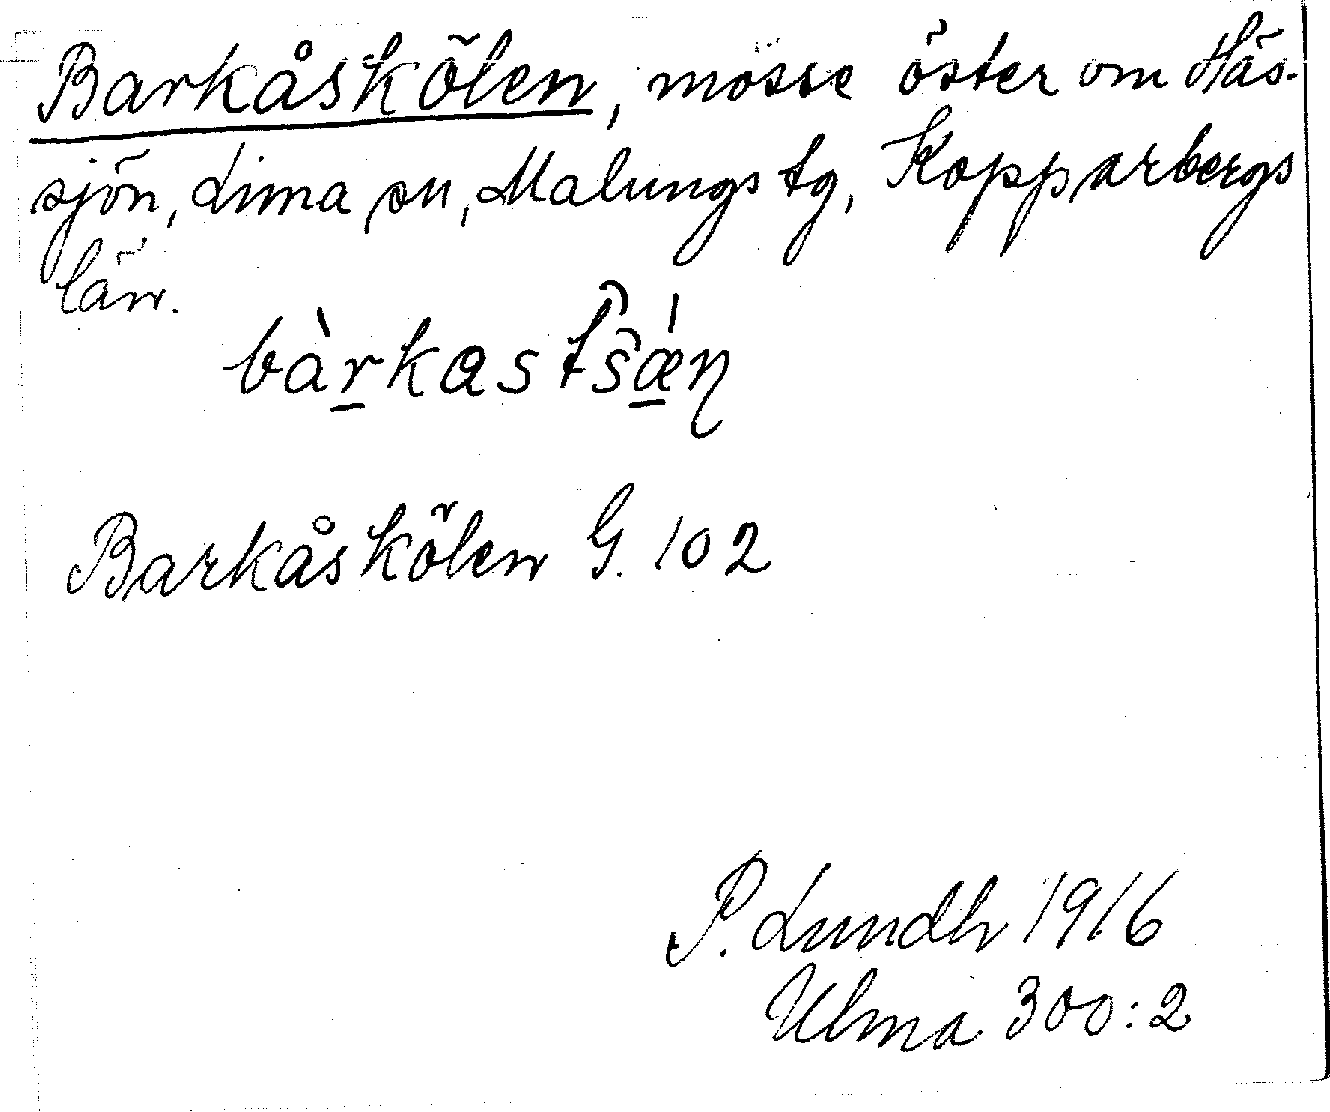 Barkåskölen, mosse öster om Häs-
sjön, Lima sn, Malungs tg, Kopparbergs
län.
bàr̲kast̑s̑ǽ̲ŋ
Barkåskölen G. 102
P. Lundh 1916
Ulma 300:2